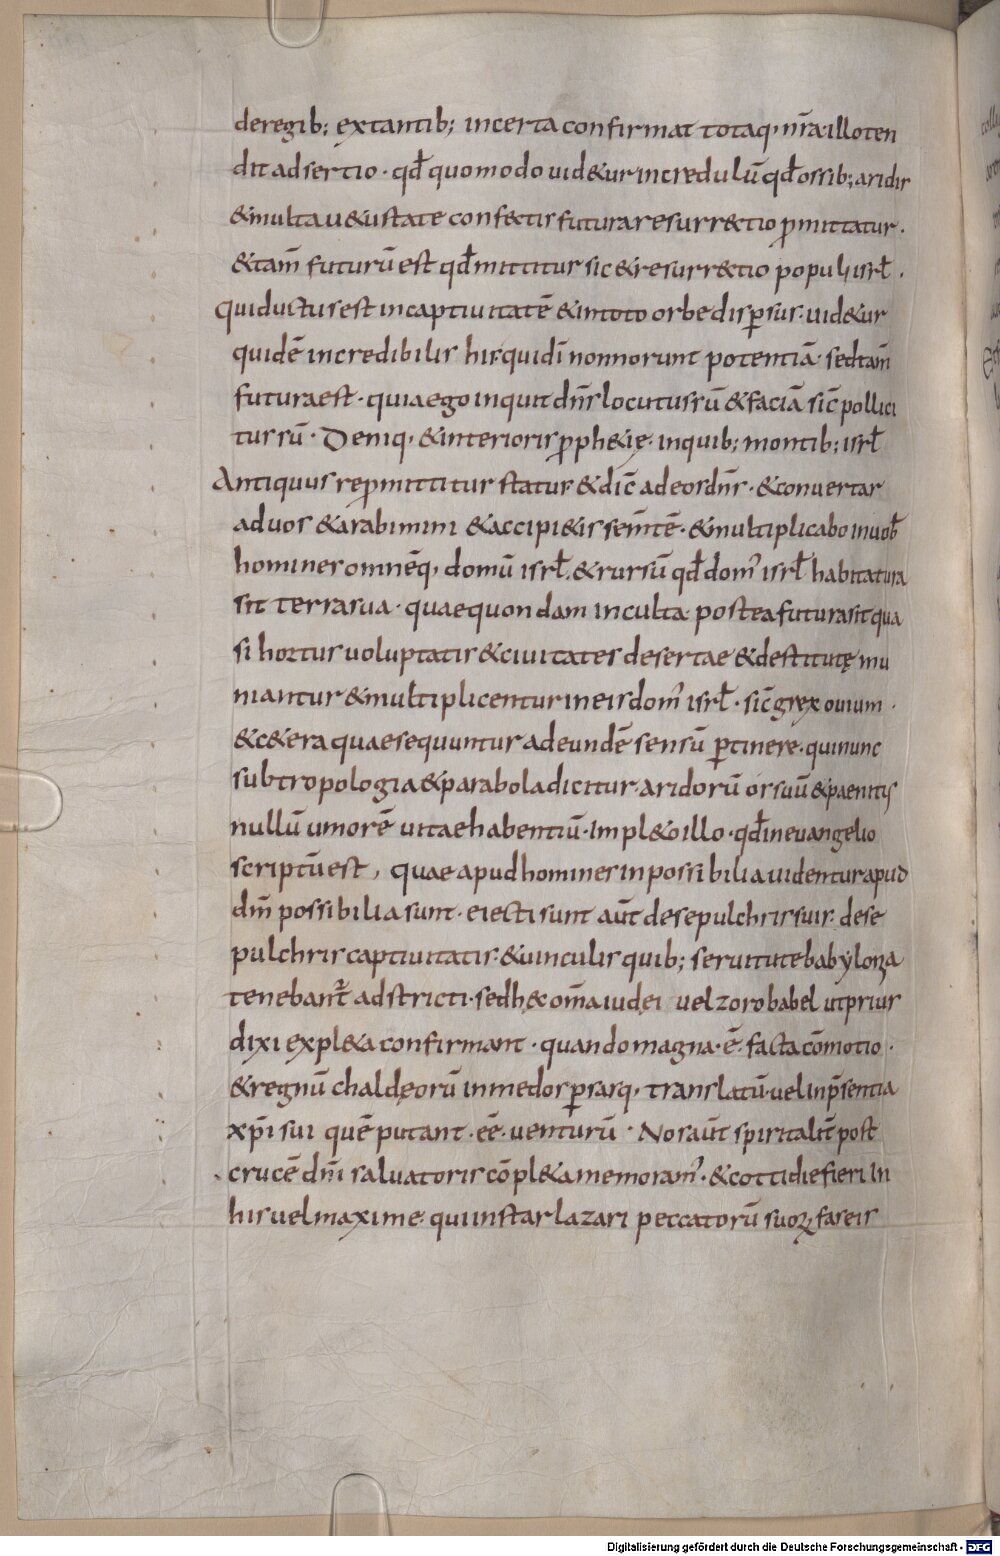 deregib; extantib; incerta confirmat totaq, nr̄a illoten
dit adsertio · qd̄ quomodo uid&ur incredulū qd̄ ossib; aridis
& multa u&ustate conf&tis futura resurr&tio p̄mittatur ·
& tam̄ futurū est qd̄ mittitur sic & resurr&tio populi isrl̄ ·
Qui ductus est in captiuitatē & intoto orbe disp̄sus · uid&ur
quidē incredibilis his quidī non norunt potentiā · sed tam̄
futura est · quia ego inquit dn̄s locutus sū & faciā sic̄ pollici
tus sū · Deniq, & interioris p̄ph&ię · inquib; montib; isrl̄
Antiquus rep̄mittitur status & dic̄ ad eos dn̄s · & conuertar
ad uos & arabimini & accipi&is sem̄tē · & multiplicabo in uob̄
homines omnēq, domū isrl̄ · & rursū qd̄ dom' isrl̄ habitatura
sit terra sua · quae quondam inculta · postea futura sit qua
si hortus uoluptatis & ciuitates desertae & destitutę mu
niantur & multiplicentur in eis dom' isrl̄ · sic̄ grex ouium ·
& c&era quae sequuntur ad eundē sensū p̄tinere · qui nunc
sub tropologia & parabola dicitur · aridorū ossuū & paenitus
nullū umorē uitae habentiū · Impl&o illo · qd̄ in euangelio
scriptū est, quae apud homines inpossibilia uidentur apud
dm̄ possibilia sunt · eiecti sunt aūt de sepulchris suis · de se
pulchris captiuitatis · & uinculis quib; seruitute babylonia
tenebant̄ adstricti · sed hęc om̄a iudei uel zorobabel ut prius
dixi expl&a confirmant · quando magna · ē · facta cōmotio ·
& regnū chaldęorū in medos p̄sasq, translatū · uel in p̄sentia
xp̄i sui quē putant · eē · uenturū · Nos aūt spiritalit̄ post
crucē dn̄i saluatoris cōpl&a memoram' · & cottidie fieri In
his uel maxime · qui instar lazari peccatorū suoꝝ faseis
Digitalisierung gefördert durch die Deutsche Forschungsgemeinschaft - DFG